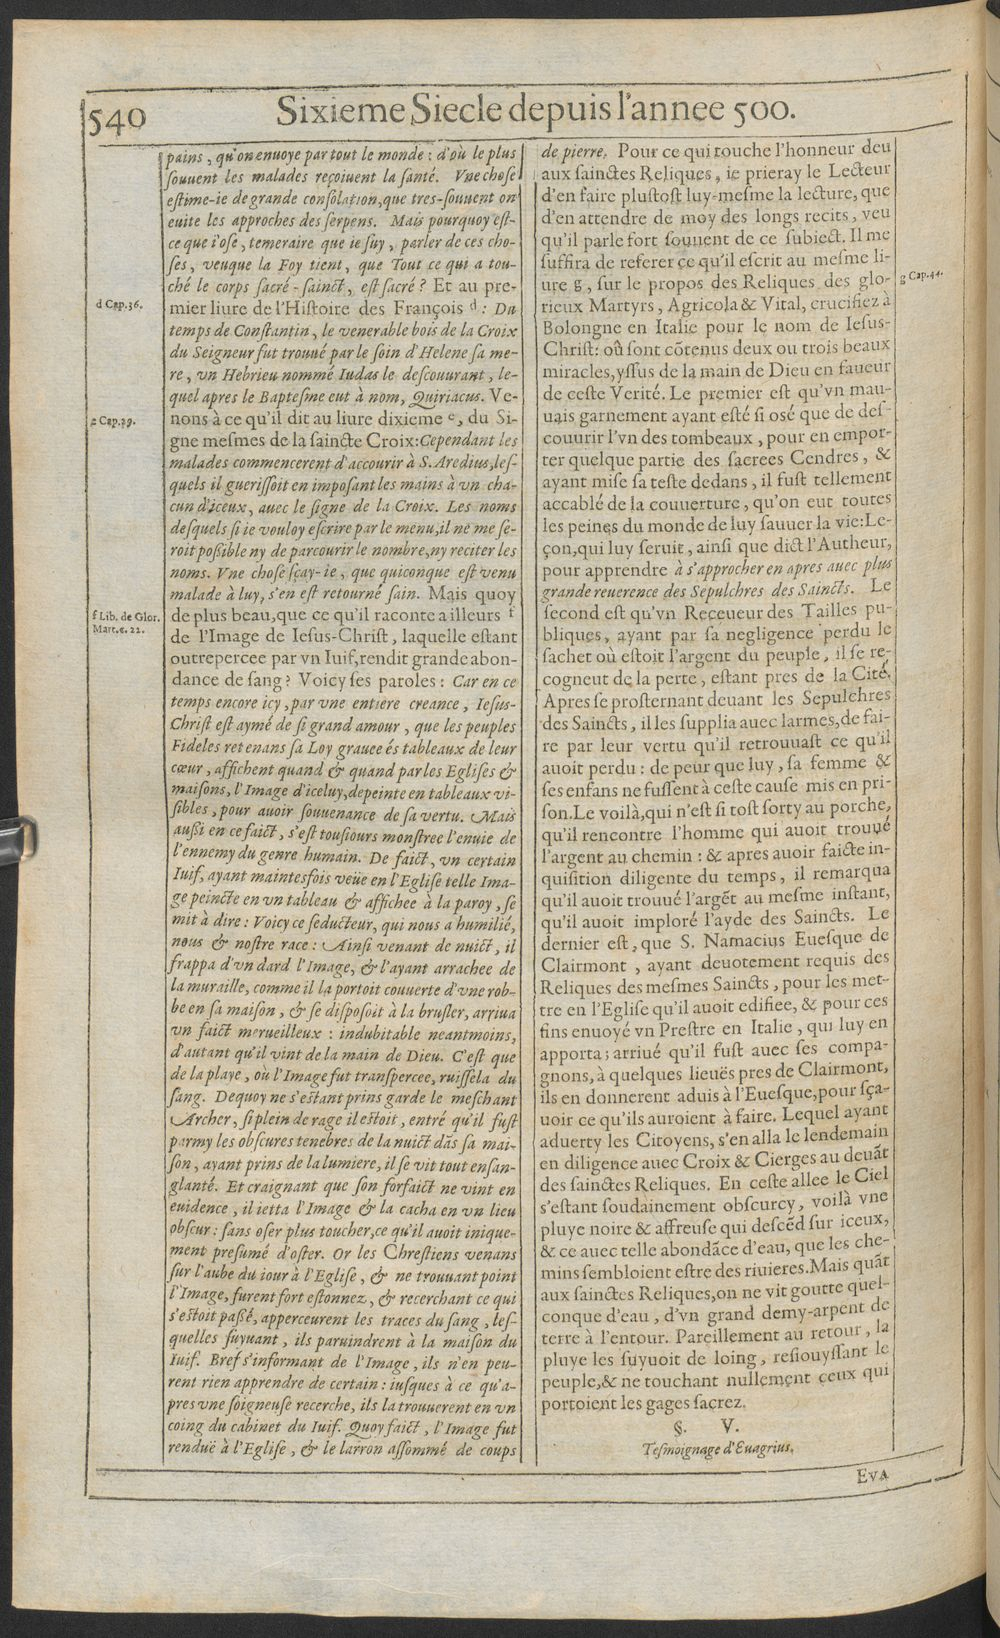 540 Sixieme Siecle depuis l'annee 500.
pains, qu'on enuoye par tout le monde : d'où le plus
ſouuent les malades reçoiuent la ſanté. Vne choſe
eſtime-ie de grande conſolation, que tres-ſouuent on
euite les approches des ſerpens. Mais pourquoy eſt-
ce que i'oſe, temeraire que ie ſuy, parler de ces cho-
ſes, veuque la Foy tient, que Tout ce qui a tou-
ché le corps ſacré-ſainct, eſt ſacré ? Et au pre-
mier liure de l'Hiſtoire des François d : Du
temps de Conſtantin, le venerable bois de la Croix
du Seigneur fut trouué par le ſoin d'Helene ſa me-
re, vn Hebrieu nommé Iudas le deſcouurant, le-
quel apres le Bapteſme eut à nom, Quiriacus. Ve-
nons à ce qu'il dit au liure dixieme e, du Si-
gne meſmes de la ſaincte Croix: Cependant les
malades commencerent d'accourir à S. Aredius, leſ-
quels il gueriſſoit en impoſant les mains à vn cha-
cun d'iceux, auec le ſigne de la Croix. Les noms
deſquels ſi ie vouloy eſcrire par le menu, il ne me ſe-
roit poßible ny de parcourir le nombre, ny reciter les
noms. Vne choſe ſçay-ie, que quiconque eſt venu
malade à luy, s'en eſt retourné ſain. Mais quoy
de plus beau, que ce qu'il raconte ailleurs f
de l'Image de Ieſus-Chriſt, laquelle eſtant
outrepercee par vn Iuif, rendit grande abon-
dance de ſang? Voicy ſes paroles : Car en ce
temps encore icy, par vne entiere creance, Ieſus-
Chriſt eſt aymé de ſi grand amour, que les peuples
Fideles retenans ſa Loy grauee és tableaux de leur
cœur, affichent quand & quand par les Egliſes &
maiſons, l'Image d'iceluy, depeinte en tableaux vi-
ſibles, pour auoir ſouuenance de ſa vertu. Mais
außi en ce faict, s'eſt touſiours monſtree l'enuie de
l'ennemy du genre humain. De faict, vn certain
Iuif, ayant maintesfois veüe en l'Egliſe telle Ima-
ge peincte en vn tableau & affichee à la paroy, ſe
mit à dire : Voicy ce ſeducteur, qui nous a humilié,
nous & noſtre race : Ainſi venant de nuict, il
frappa d'vn dard l'Image, & l'ayant arrachee de
la muraille, comme il la portoit couuerte d'vne rob-
be en ſa maiſon, & ſe diſpoſoit à la bruſler, arriua
vn faict merueilleux : indubitable neantmoins,
d'autant qu'il vint de la main de Dieu. C'eſt que
de la playe, où l'Image fut tranſpercee, ruiſſela du
ſang. Dequoy ne s'eſtant prins garde le meſchant
Archer, ſi plein de rage il eſtoit, entré qu'il fuſt
parmy les obſcures tenebres de la nuict dãs ſa mai-
ſon, ayant prins de la lumiere, il ſe vit tout enſan-
glanté. Et craignant que ſon forfaict ne vint en
euidence, il ietta l'Image & la cacha en vn lieu
obſcur : ſans oſer plus toucher, ce qu'il auoit inique-
ment preſumé d'oſter. Or les Chreſtiens venans
ſur l'aube du iour à l'Egliſe, & ne trouuant point
l'Image, furent fort eſtonnez, & recerchant ce qui
s'eſtoit paßé, apperceurent les traces du ſang, leſ-
quelles ſuyuant, ils paruindrent à la maiſon du
Iuif. Bref s'informant de l'Image, ils n'en peu-
rent rien apprendre de certain : iuſques à ce qu'a-
pres vne ſoigneuſe recerche, ils la trouuerent en vn
coing du cabinet du Iuif. Quoy faict, l'Image fut
renduë à l'Egliſe, & le larron aſſommé de coups
d Cap. 36.
e Cap. 39.
f Lib. de Glor.
Mart. c. 22.
de pierre. Pour ce qui touche l'honneur deu
aux ſainctes Reliques, ie prieray le Lecteur
d'en faire pluſtoſt luy-meſme la lecture, que
d'en attendre de moy des longs recits, veu
qu'il parle fort ſouuent de ce ſubiect. Il me
ſuffira de referer ce qu'il eſcrit au meſme li-
ure g, ſur le propos des Reliques des glo-
rieux Martyrs, Agricola & Vital, crucifiez à
Bolongne en Italie pour le nom de Ieſus-
Chriſt: où ſont cõtenus deux ou trois beaux
miracles, yſſus de la main de Dieu en faueur
de ceſte Verité. Le premier eſt qu'vn mau-
uais garnement ayant eſté ſi oſé que de deſ-
couurir l'vn des tombeaux, pour en empor-
ter quelque partie des ſacrees Cendres, &
ayant miſe ſa teſte dedans, il fuſt tellement
accablé de la couuerture, qu'on eut toutes
les peines du monde de luy ſauuer la vie: Le-
çon, qui luy ſeruit, ainſi que dict l'Autheur,
pour apprendre à s'approcher en apres auec plus
grande reuerence des Sepulchres des Saincts. Le
ſecond eſt qu'vn Receueur des Tailles pu-
bliques, ayant par ſa negligence perdu le
ſachet où eſtoit l'argent du peuple, il ſe re-
cogneut de la perte, eſtant pres de la Cité.
Apres ſe proſternant deuant les Sepulchres
des Saincts, il les ſupplia auec larmes, de fai-
re par leur vertu qu'il retrouuaſt ce qu'il
auoit perdu : de peur que luy, ſa femme &
ſes enfans ne fuſſent à ceſte cauſe mis en pri-
ſon. Le voilà, qui n'eſt ſi toſt ſorty au porche,
qu'il rencontre l'homme qui auoit trouué
l'argent au chemin : & apres auoir faicte in-
quiſition diligente du temps, il remarqua
qu'il auoit trouué l'argẽt au meſme inſtant,
qu'il auoit imploré l'ayde des Saincts. Le
dernier eſt, que S. Namacius Eueſque de
Clairmont, ayant deuotement requis des
Reliques des meſmes Saincts, pour les met-
tre en l'Egliſe qu'il auoit edifiee, & pour ces
fins enuoyé vn Preſtre en Italie, qui luy en
apporta ; arriué qu'il fuſt auec ſes compa-
gnons, à quelques lieuës pres de Clairmont,
ils en donnerent aduis à l'Eueſque, pour ſça-
uoir ce qu'ils auroient à faire. Lequel ayant
aduerty les Citoyens, s'en alla le lendemain
en diligence auec Croix & Cierges au deuãt
des ſainctes Reliques. En ceſte allee le Ciel
s'eſtant ſoudainement obſcurcy, voilà vne
pluye noire & affreuſe qui deſcẽd ſur iceux,
& ce auec telle abondãce d'eau, que les che-
mins ſembloient eſtre des riuieres. Mais quãt
aux ſainctes Reliques, on ne vit goutte quel-
conque d'eau, d'vn grand demy-arpent de
terre à l'entour. Pareillement au retour, la
pluye les ſuyuoit de loing, reſiouyſſant le
peuple, & ne touchant nullement ceux qui
portoient les gages ſacrez.
§. V.
Teſmoignage d'Euagrius.
g Cap. 44.
EVA